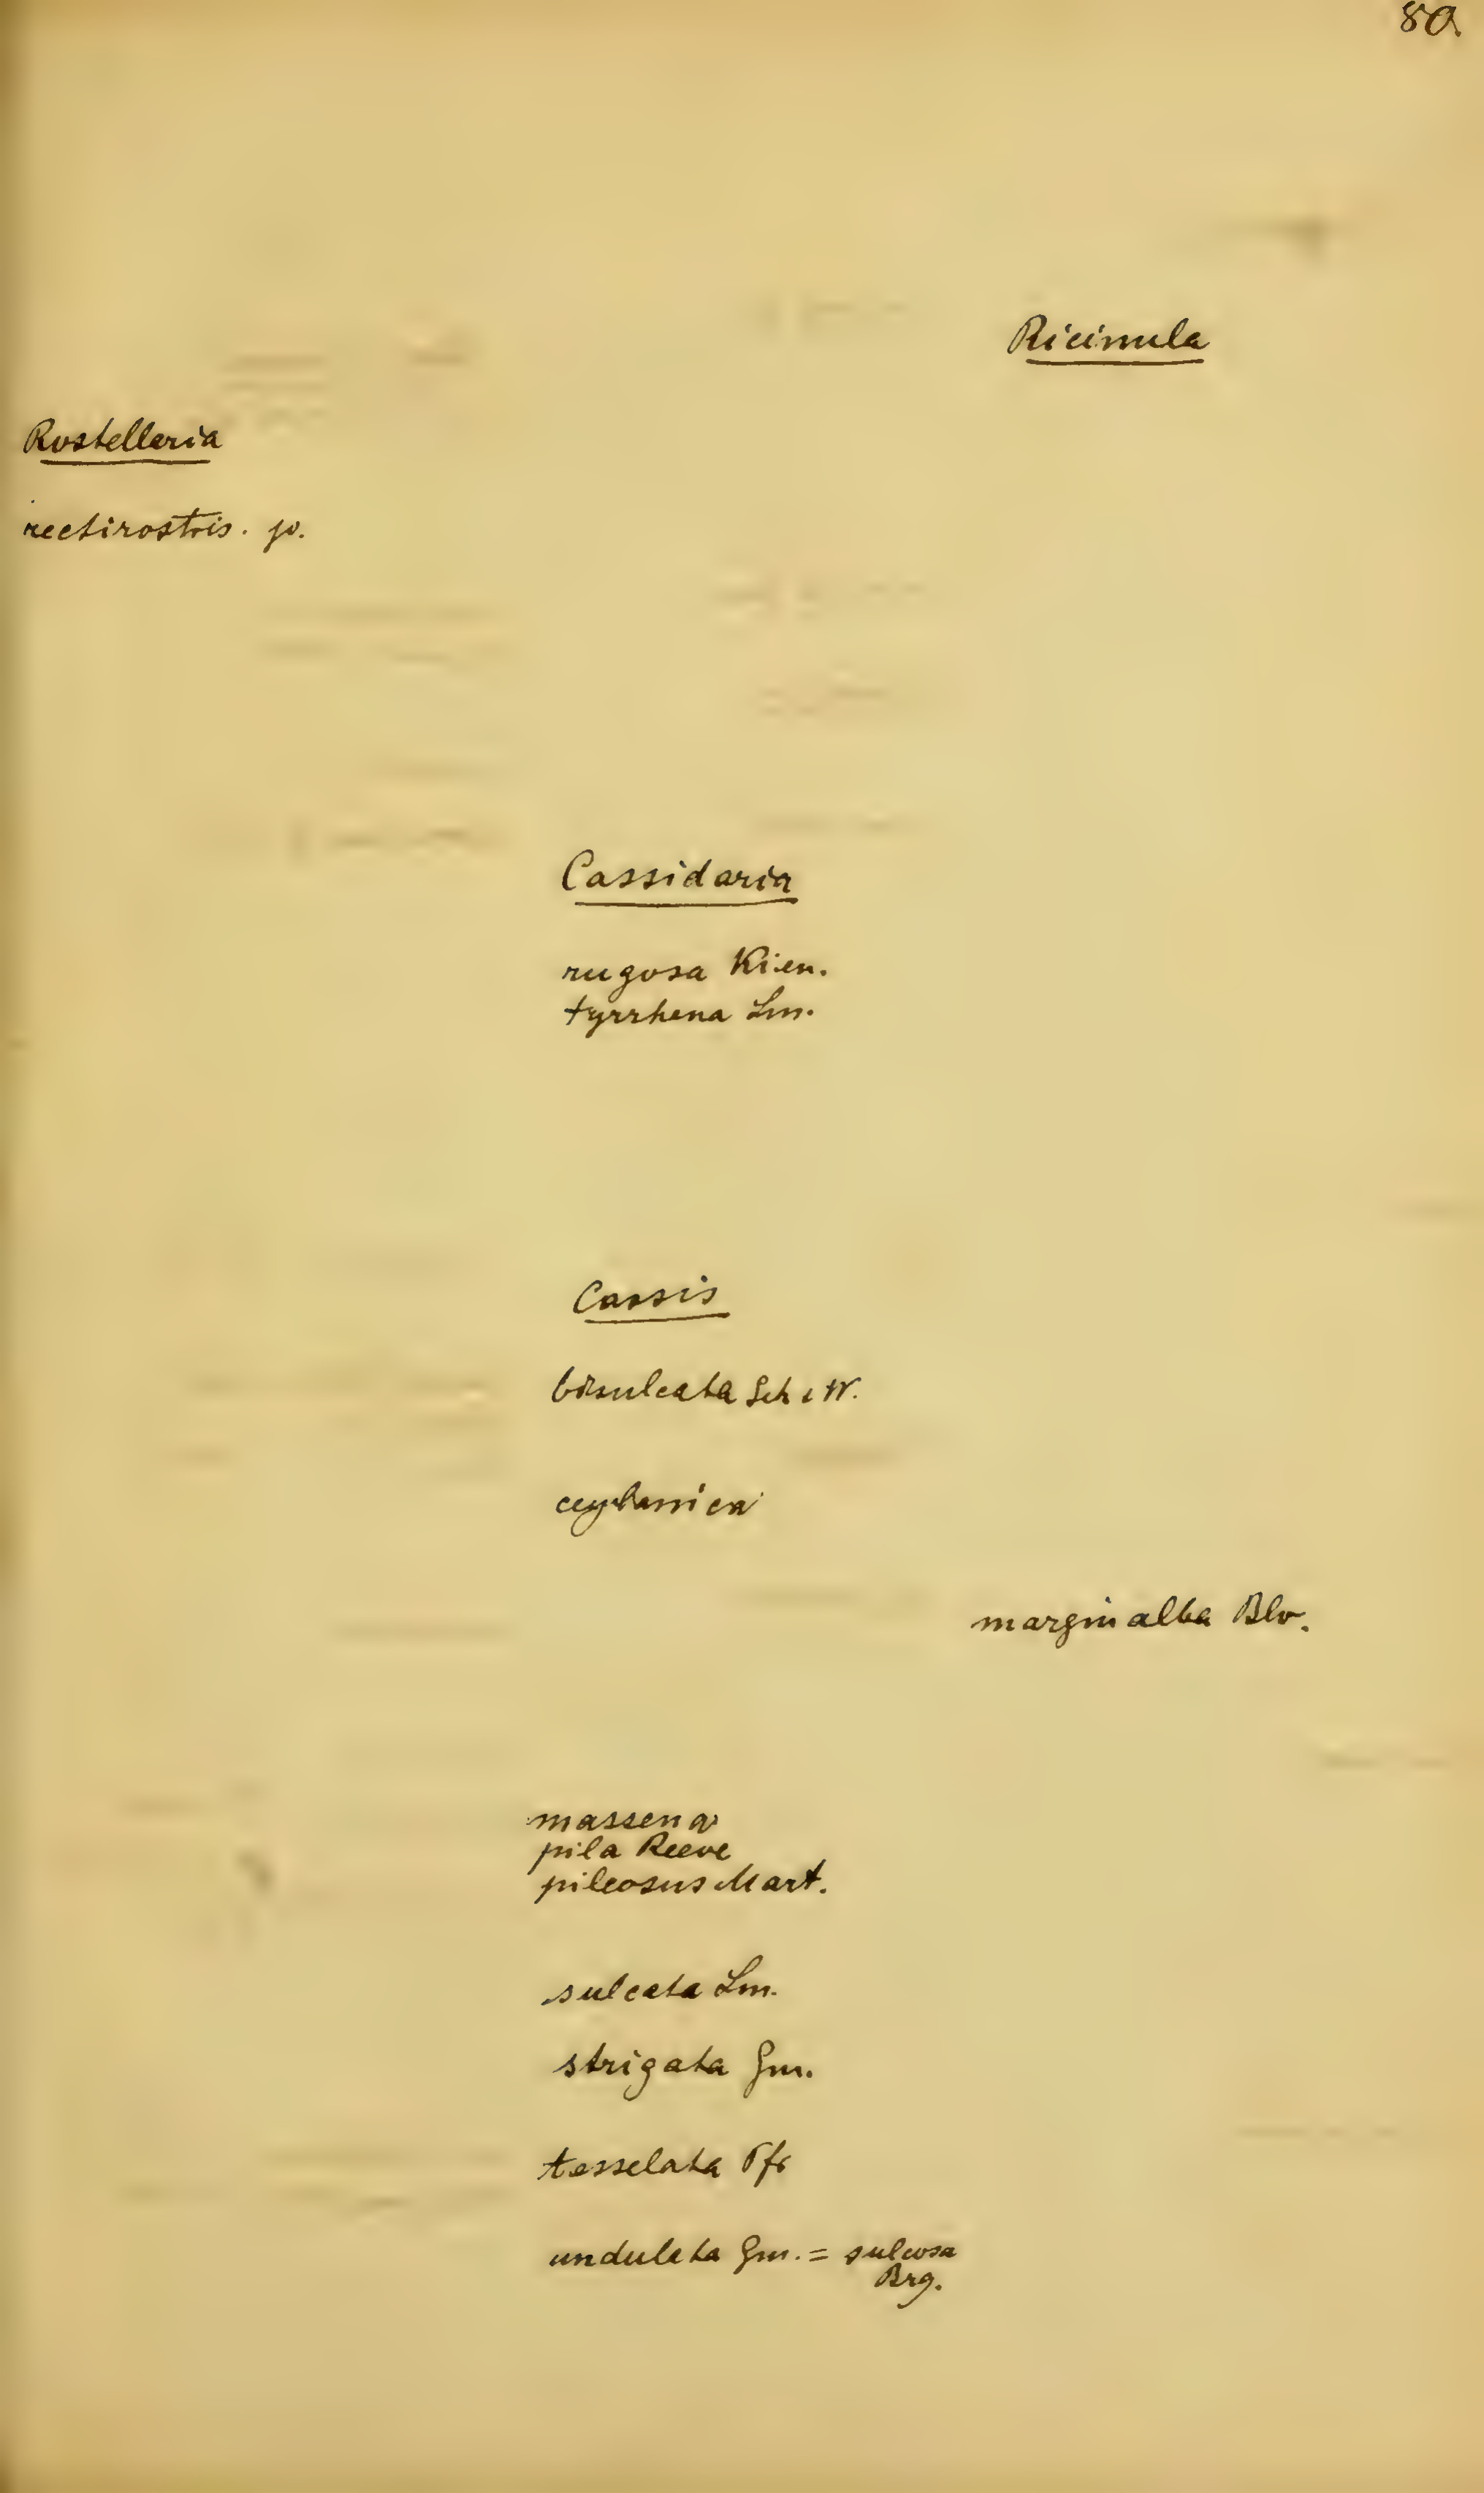 80.
Ricinula
Rostellaria
rectirostris. jo.
Cassidaria
rugosa Kien.
tyrrhena Lm.
Cassis
bisulcata Sch & W.
ceylanica
marginalba Blv.
massena
pila Reeve
pileosus Mart.
sulcata Lm.
strigata Gm.
tesselata Pfr
undulata Gm. = sulcosa
Brg.